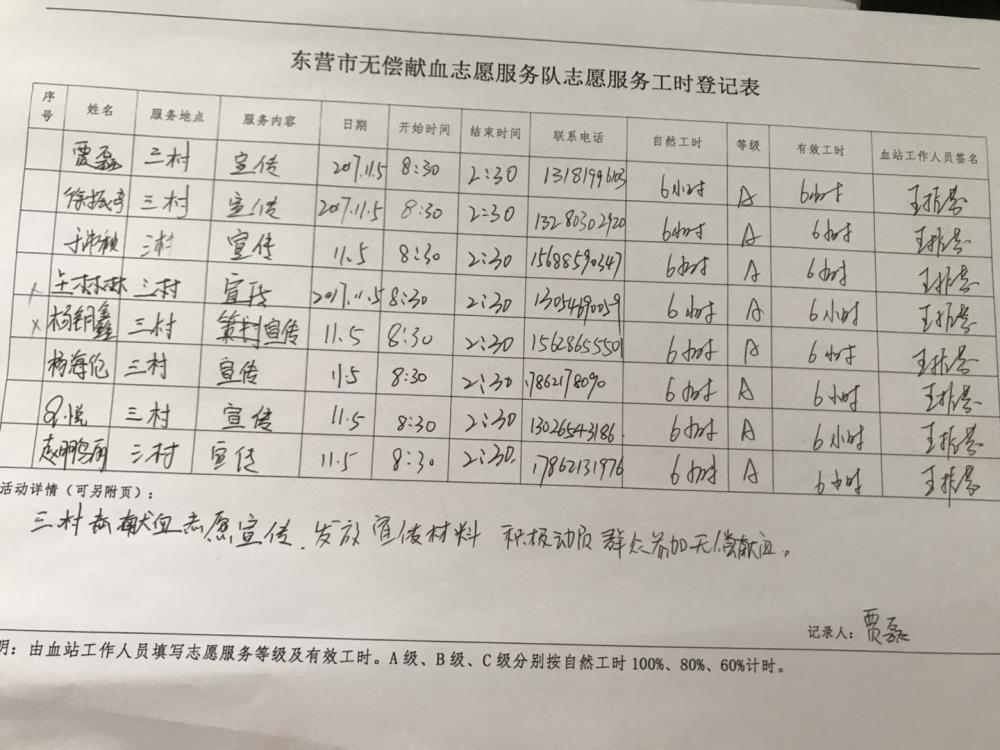 东营市无偿献血志愿服务队志愿服务工时登记表
序号 姓名 服务地点 服务内容 日期 开始时间 结束时间 联系电话 自然工时 等级 有效工时 血站工作人员签名
贾磊 三村 宣传 2017.11.5 8:30 2:30 13181996103 6小时 A 6小时
三村 宣传 2017.11.5 8:30 2:30 13280302920 6小时 A 6小时
三村 宣传 11.5 8:30 2:30 15688590347 6小时 A 6小时
x 林林 三村 宣传 2017.11.5 8:30 2:30 13054690059 6小时 A 6小时
x 杨钥鑫 三村 宣传 11.5 8:30 2:30 15628655501 6小时 A 6小时
杨海伦 三村 宣传 11.5 8:30 2:30 17862178090 6小时 A 6小时
悦 三村 宣传 11.5 8:30 2:30 13026543186 6小时 A 6小时
赵鹏丽 三村 宣传 11.5 8:30 2:30 17862131976 6小时 A 6小时
活动详情（可另附页）：
三村 献血志愿宣传.发放宣传材料 积极动员群众参加无偿献血。
记录人：贾磊
明：由血站工作人员填写志愿服务等级及有效工时。A级、B级、C级分别按自然工时100%、80%、60%计时。